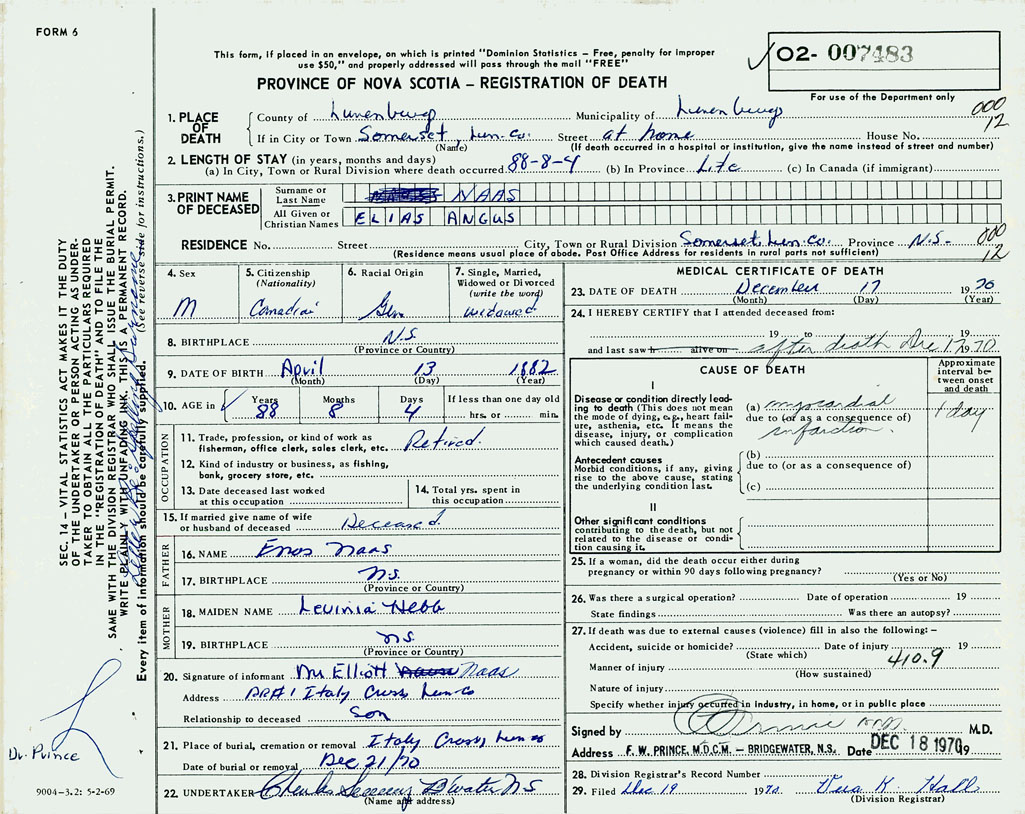 FORM 6
This form, if placed in an envelope, on which is printed "Dominion Statistics – Free, penalty for improper
use $50," and properly addressed will pass through the mail "FREE"
O2- 007483
For use of the Department only
PROVINCE OF NOVA SCOTIA – REGISTRATION OF DEATH
000
12
1. PLACE OF DEATH
County of Lunenburg Municipality of Lunenburg
If in City or Town Somerset, Lun. Co. Street at home House No.
(Name) (If death occurred in a hospital or institution, give the name instead of street and number)
2. LENGTH OF STAY (in years, months and days)
(a) In City, Town or Rural Division where death occurred 88-8-4 (b) In Province Life (c) In Canada (if immigrant)
3. PRINT NAME OF DECEASED
Surname or Last Name NAAS
All Given or Christian Names ELIAS ANGUS
RESIDENCE No. Street City, Town or Rural Division Somerset Lun. Co. Province N.S. 000
12
(Residence means usual place of abode. Post Office Address for residents in rural parts not sufficient)
4. Sex M
5. Citizenship (Nationality) Canadian
6. Racial Origin Ger
7. Single, Married, Widowed or Divorced (write the word) widowed
8. BIRTHPLACE N.S.
(Province or Country)
9. DATE OF BIRTH April 13 1882
(Month) (Day) (Year)
10. AGE in Years 88 Months 8 Days 4 If less than one day old
hrs. or min.
OCCUPATION
11. Trade, profession, or kind of work as
fisherman, office clerk, sales clerk, etc. Retired.
12. Kind of industry or business, as fishing,
bank, grocery store, etc.
13. Date deceased last worked
at this occupation
14. Total yrs. spent in
this occupation
15. If married give name of wife
or husband of deceased Deceased.
FATHER
16. NAME Enos Naas
17. BIRTHPLACE N.S.
(Province or Country)
MOTHER
18. MAIDEN NAME Levinia Hebb
19. BIRTHPLACE N.S.
(Province or Country)
20. Signature of informant Mr Elliott Naas
Address RR#1 Italy Cross Lun Co
Relationship to deceased Son
21. Place of burial, cremation or removal Italy Cross, Lun Co
Date of burial or removal Dec 21/70
22. UNDERTAKER Charles B'water NS
(Name and address)
MEDICAL CERTIFICATE OF DEATH
23. DATE OF DEATH December 17 1970
(Month) (Day) (Year)
24. I HEREBY CERTIFY that I attended deceased from:
19 to 19
and last saw h alive on after death Dec 17 1970
CAUSE OF DEATH
Approximate interval between onset and death
I
Disease or condition directly lead-
ing to death (This does not mean
the mode of dying, e.g., heart fail-
ure, asthenia, etc. It means the
disease, injury, or complication
which caused death.)
(a) myocardial
due to (or as a consequence of)
infarction
1 day
Antecedent causes
Morbid conditions, if any, giving
rise to the above cause, stating
the underlying condition last.
(b)
due to (or as a consequence of)
(c)
II
Other significant conditions
contributing to the death, but not
related to the disease or condi-
tion causing it.
25. If a woman, did the death occur either during
pregnancy or within 90 days following pregnancy?
(Yes or No)
26. Was there a surgical operation? Date of operation 19
State findings Was there an autopsy?
27. If death was due to external causes (violence) fill in also the following: –
Accident, suicide or homicide? Date of injury 19
(State which) 410.9
Manner of injury
(How sustained)
Nature of injury
Specify whether injury occurred in industry, in home, or in public place
Signed by Prince M.D.
Address F. W. PRINCE, M.D.C.M. – BRIDGEWATER, N.S. Date DEC 18 1970 19
28. Division Registrar's Record Number
29. Filed Dec 19 1970 Vera K. Hall
(Division Registrar)
SEC. 14 – VITAL STATISTICS ACT MAKES IT THE DUTY
OF THE UNDERTAKER OR PERSON ACTING AS UNDER-
TAKER TO OBTAIN ALL THE PARTICULARS REQUIRED
IN THE "REGISTRATION OF DEATH" AND TO FILE THE
SAME WITH THE DIVISION REGISTRAR WHO SHALL ISSUE THE BURIAL PERMIT.
WRITE PLAINLY WITH UNFADING INK. THIS IS A PERMANENT RECORD.
Every item of information should be carefully supplied. (See reverse side for instructions.)
Dr. Prince
9004–3.2: 5-2-69